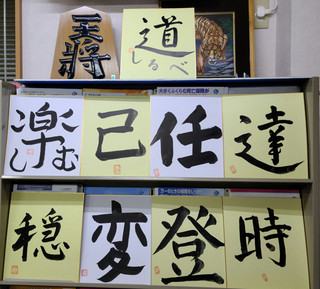 王将
道
しるべ
楽しむ
己
任
達
穏
変
登
時